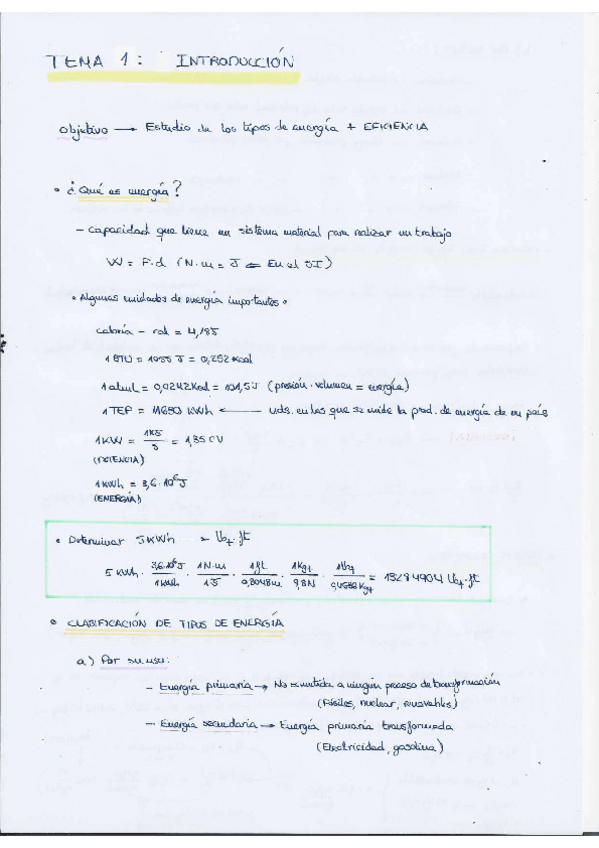 TEMA 1: INTRODUCCIÓN
Objetivo → Estudio de los tipos de energía + EFICIENCIA
• ¿Qué es energía?
- Capacidad que tiene un sistema material para realizar un trabajo
W = F.d (N.m = J ⇐ En el SI)
• Algunas unidades de energía importantes •
caloría - cal = 4,18J
1 BTU = 1055 J = 0,252 Kcal
1 atm.L = 0,0242 Kcal = 101,5J (presión · volumen = energía)
1 TEP = 11630 KWh ← uds. en las que se mide la prod. de energía de un país
1KW = 1KJ/s = 1,35 CV
(POTENCIA)
1KWh = 3,6·10⁶J
(ENERGÍA)
• Determinar 5KWh → lb_f·ft
5 KWh · 3,6·10⁶J/1KWh · 1N·m/1J · 1ft/0,3048m · 1Kg_f/9,8N · 1lb_f/0,4536Kg_f = 13284904 lb_f·ft
• CLASIFICACIÓN DE TIPOS DE ENERGÍA
a) Por su uso:
- Energía primaria → No sometida a ningún proceso de transformación
(Fósiles, nuclear, renovables)
- Energía secundaria → Energía primaria transformada
(Electricidad, gasolina)